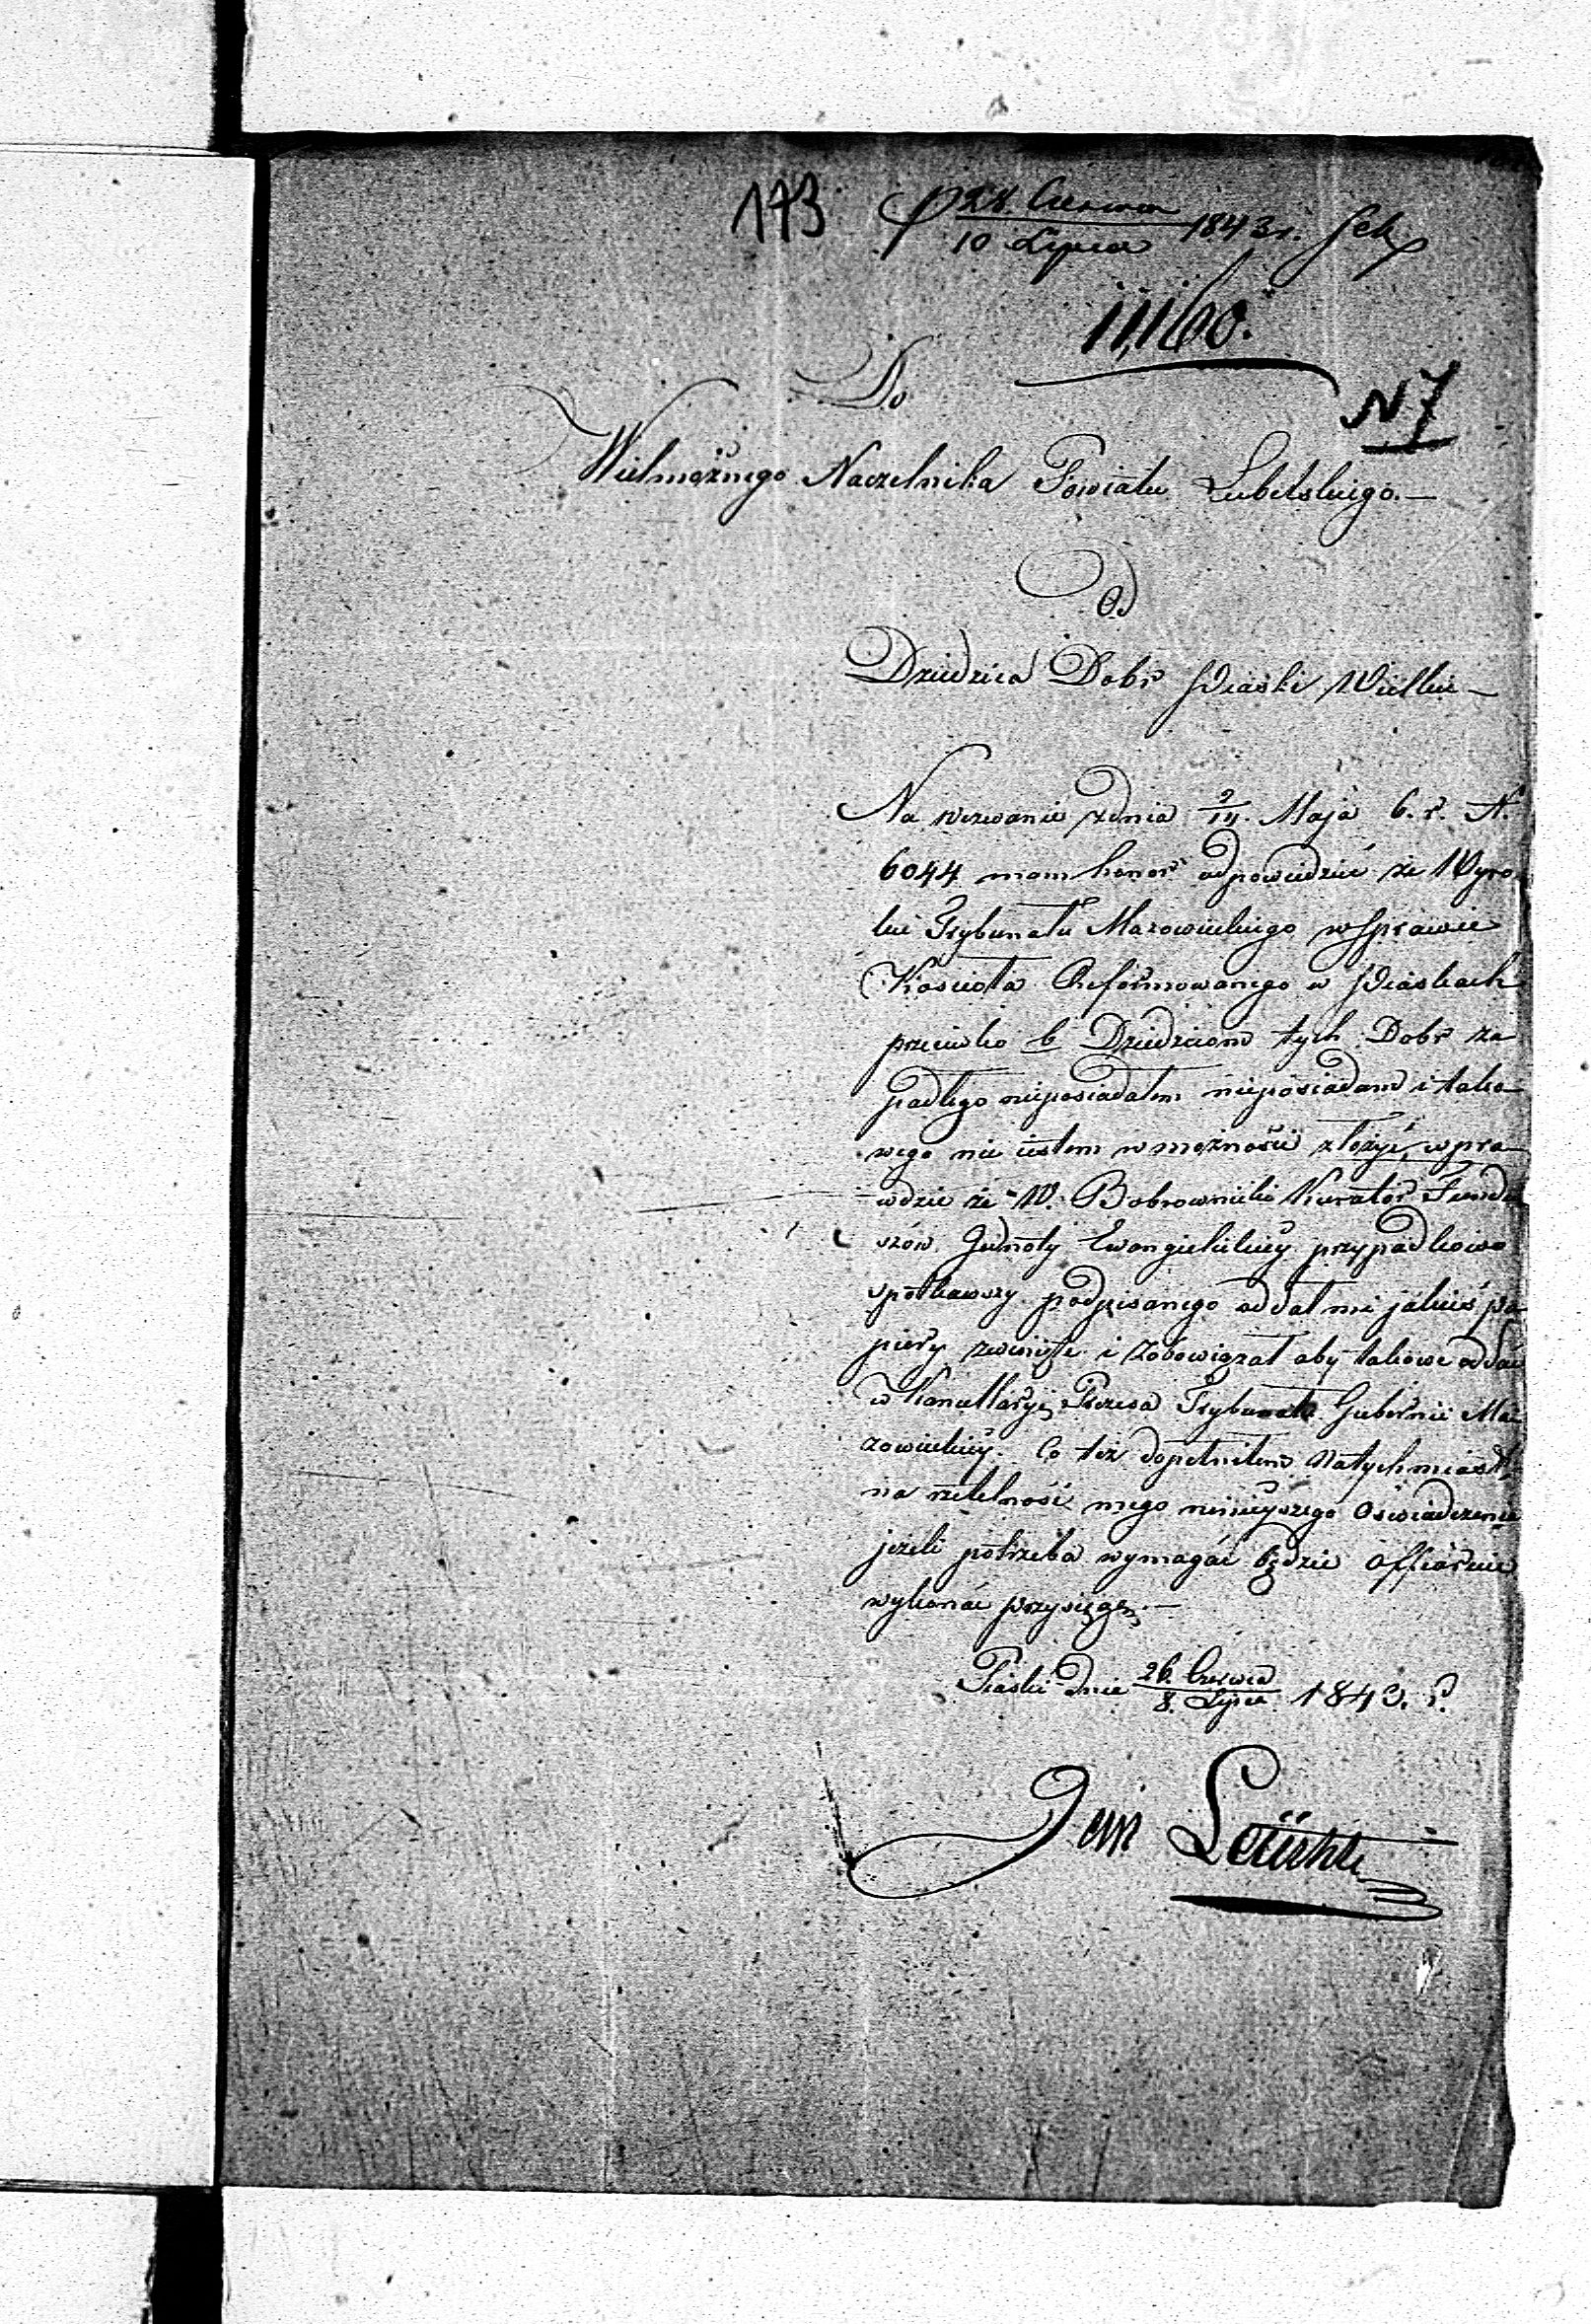 173
28. Czerwca
10 Lipca 1843 r.
11,160.
N 7
Do
Wielmożnego Naczelnika Powiatu Lubelskiego.—
Od
Dziedzica Dobr Piaski Wielkie—
Na wezwanie z dnia 9/21. Maja b. r. N.
6044 mam honor odpowiedzieć że Wyro
ku Trybunału Mazowieckiego w sprawie
Kościoła Reformowanego w Piaskach
przeciwko b Dziedzicom tych Dobr za
padłego nieposiadałem nieposiadam i tako
wego nie iestem w możności złożyć, wpra
wdzie że W. Bobrownicki Kurator Fundu
szów Jednoty Ewangielickiey przypadkowo
spotkawszy podpisanego oddał mi jakieś pa
piery zwinięte i zobowiązał aby takowe oddać
w Kancellaryę Prezesa Trybunału Gubernii Ma
zowieckiey. Co też dopełniłem Natychmiast,
na rzetelność mego ninieyszego Oświadczenia
jeżeli potrzeba wymagać będzie offiaruie
wykonać przysięgę.—
Piaski dnia 26. Czerwca
8. Lipca 1843. r.
Jan